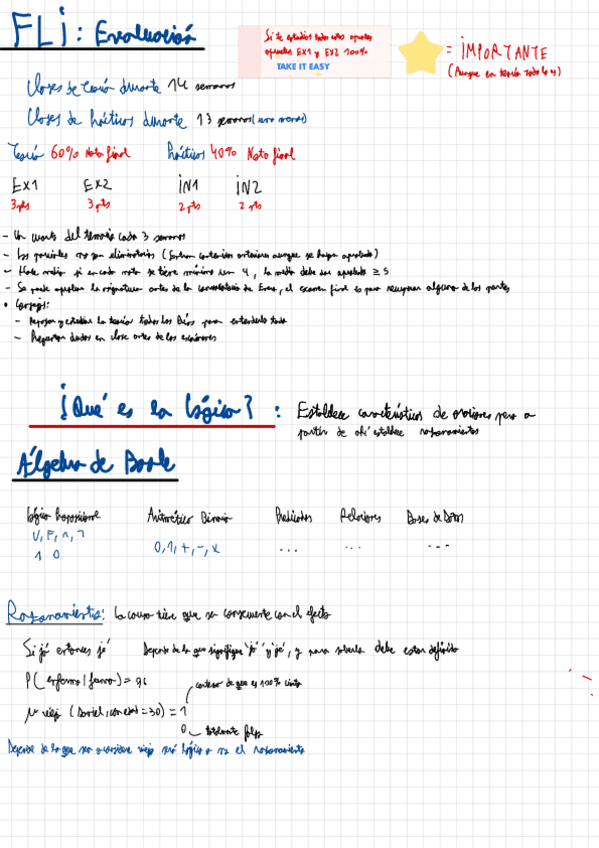 FLI: Evaluación
Si te estudias todos estos apuntes
apruebas EX1 y EX2 100%
TAKE IT EASY
= IMPORTANTE
(Aunque en teoría todo lo es)
Clases de teoría durante 14 semanas
Clases de Prácticas durante 13 semanas (una menos)
Teoría 60% Nota final Prácticas 40% Nota final
EX1 EX2 IN1 IN2
3 pts 3 pts 2 pts 2 pts
- Un cuarto del temario cada 3 semanas
- Los parciales no son eliminatorios (Entran contenidos anteriores aunque se hayan aprobado)
- Hace media si en cada nota se tiene mínimo un 4, la media debe ser aprobado ≥ 5
- Se puede aprobar la asignatura antes de la convocatoria de Enero, el examen final es para recuperar alguna de las partes
• Consejos:
- Repasar y estudiar la teoría todos los días para entenderlo todo
- Preguntar dudas en clase antes de los exámenes
¿Qué es la lógica? : Establece características de oraciones para a
partir de ahí establecer razonamientos
Álgebra de Boole
Lógica Proposicional Aritmética Binaria Predicados Relaciones Bases de Datos
V, F, ∧, ¬ 0, 1, +, -, x ... ... ...
1 0
Razonamiento: La causa tiene que ser consecuente con el efecto
Si jó entonces jé Depende de lo que signifique "jó" y "jé", y para saberlo debe estar definido
P( enfermo | fumo) = 96
certeza de que es 100% cierto
μ viejo (Daniel, con edad = 30) = 1
0 totalmente falso
Depende de lo que se considere viejo será lógico o no el razonamiento